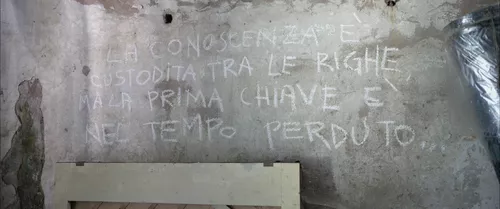 LA CONOSCENZA È
CUSTODITA TRA LE RIGHE,
MA LA PRIMA CHIAVE È
NEL TEMPO PERDUTO...